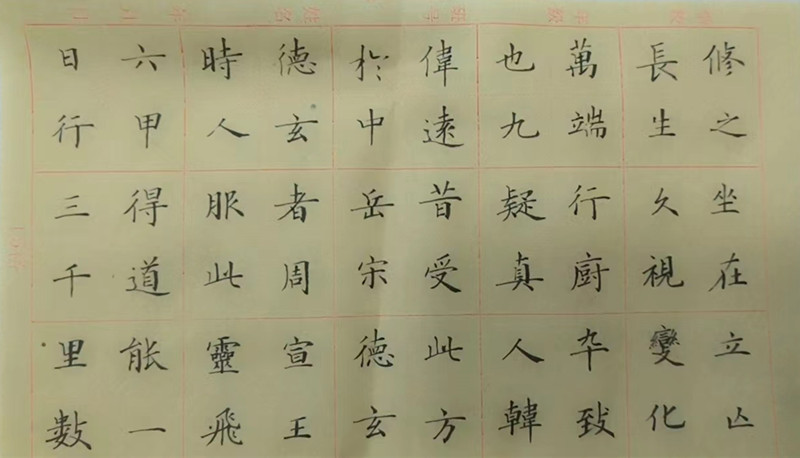 修之坐在立亡
長生久視變化
萬端行廚卒致
也九疑真人韓
偉遠昔受此方
於中岳宋德玄
德玄者周宣王
時人服此靈飛
六甲得道能一
日行三千里數